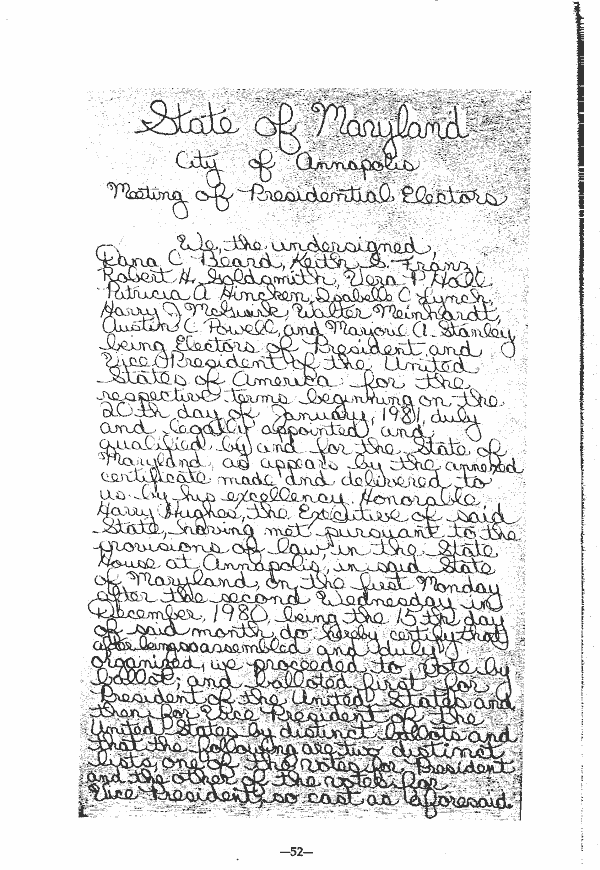 State of Maryland
City of Annapolis
Meeting of Presidential Electors
We, the undersigned,
Dana C Beard, Keith S. Franz,
Robert H. Goldsmith, Vera P Hall
Patricia A Hincken, Isabelle C Lynch,
Harry J McGuirk, Walter Meinhardt,
Austin C Powell, and Marjorie A. Stanley
being Electors of President and
Vice President of the United
States of America for the
respective terms beginning on the
20th day of January, 1981, duly
and legally appointed and
qualified by and for the State of
Maryland, as appears by the annexed
certificate made and delivered to
us by his excellency Honorable
Harry Hughes, the Executive of said
State, having met pursuant to the
provisions of law, in the State
House at Annapolis, in said State
of Maryland, on the first Monday
after the second Wednesday in
December, 1980, being the 15th day
of said month, do hereby certify that
after being so assembled and duly
organized, we proceeded to vote by
ballot; and balloted first for
President of the United States and
then for Vice President of the
United States by distinct ballots and
that the following are two distinct
lists, one of the votes for President
and the other of the votes for
Vice President, so cast as aforesaid.
—52—